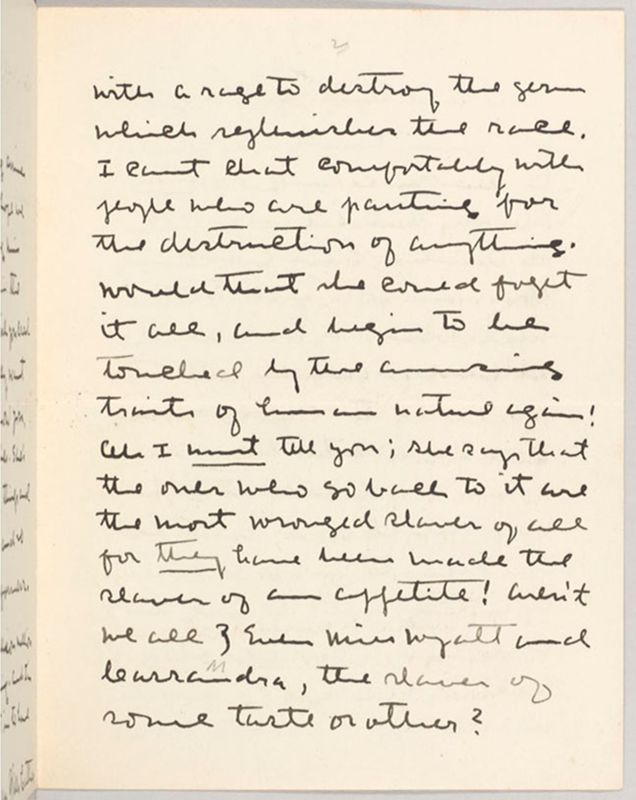 2
with a rage to destroy the germ
which replenishes the race.
I cant chat comfortably with
people who are panting for
the destruction of anything.
would that she could foget
it all, and begin to be
touched by the amusing
traits of human nature again!
Ah I must tell you; she says that
the ones who go back to it are
the most wronged slaves of all
for they have been made the
slaves of an appetite! aren't
we all? Even Miss Wyatt and
Cassandra, the slaves of
some taste or other?